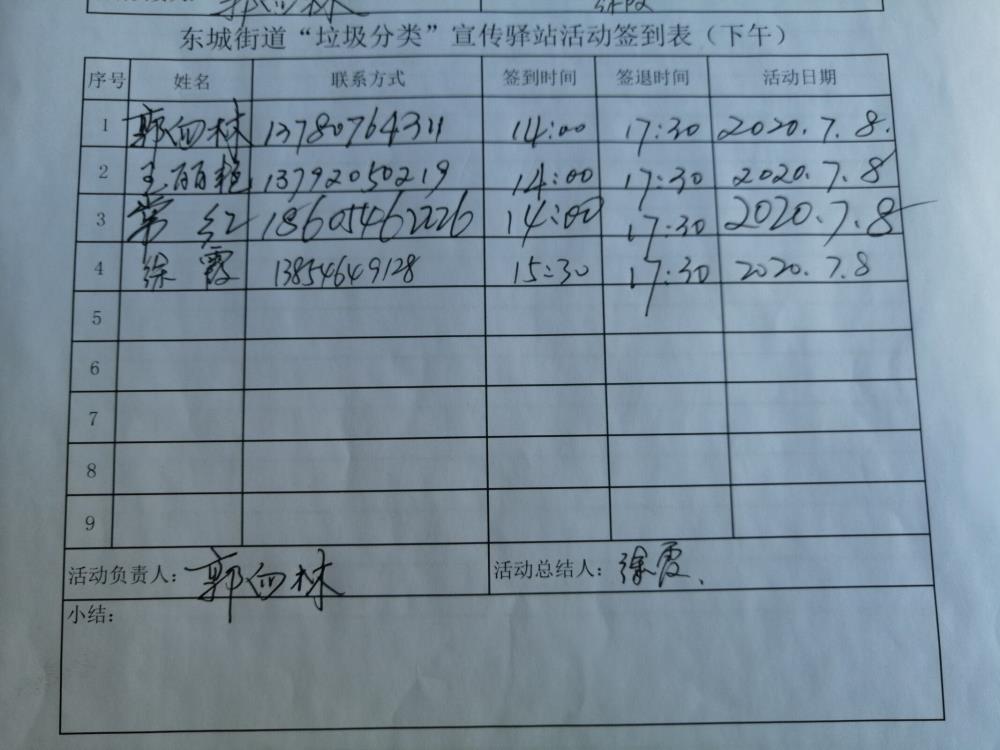 东城街道“垃圾分类”宣传驿站活动签到表（下午）
序号 姓名 联系方式 签到时间 签退时间 活动日期
1 郭向林 13780764311 14:00 17:30 2020.7.8.
2 王丽艳 13792050219 14:00 17:30 2020.7.8
3 常红 18605462226 14:00 17:30 2020.7.8
4 徐霞 13854649128 15:30 17:30 2020.7.8
5
6
7
8
9
活动负责人：郭向林 活动总结人：徐霞、
小结：